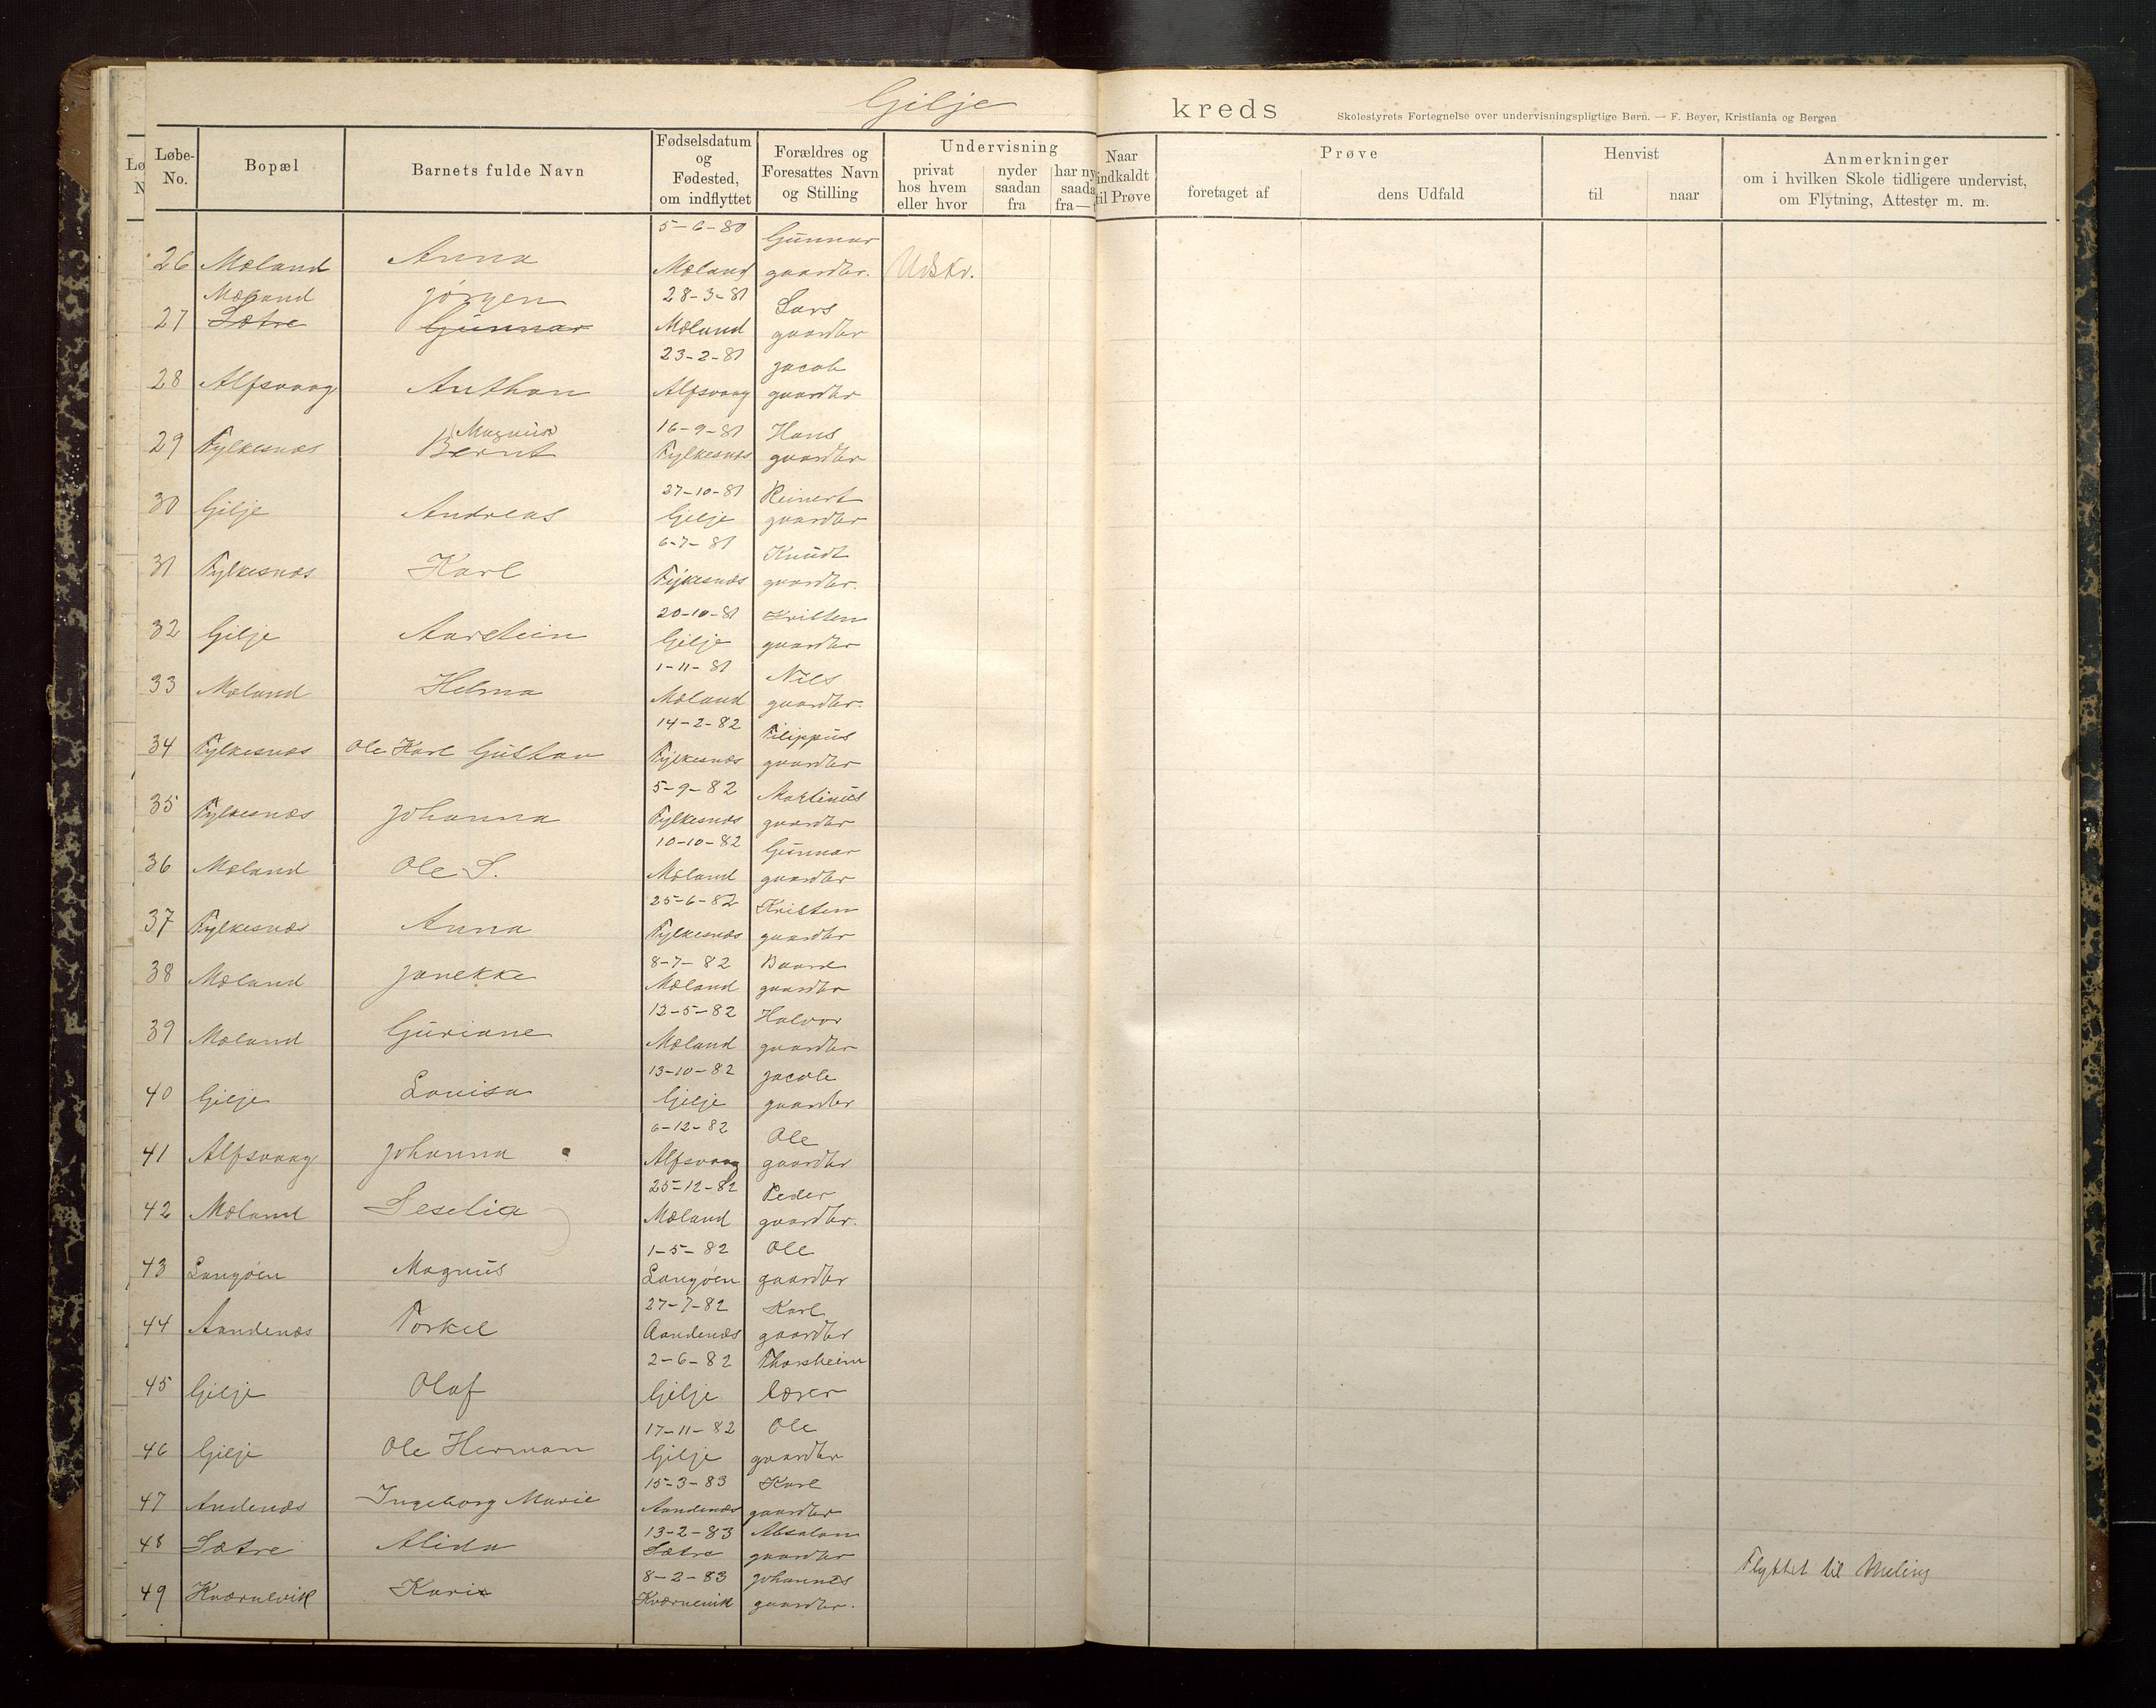 Gilje kreds Skolestyrets Fortegnelse over undervisningspligtige Børn. — F. Beyer, Kristiania og Bergen
Løbe-No. Bopæl Barnets fulde Navn Fødselsdatum og Fødested, om indflyttet Forældres og Foresattes Navn og Stilling Undervisning privat hos hvem eller hvor nyder saadan fra har ny saada fra— Naar indkaldt til Prøve Prøve foretaget af dens Udfald Henvist til naar Anmerkninger om i hvilken Skole tidligere undervist, om Flytning, Attester m. m.
5-6-80 Gunnar
26 Mæland Anna Mæland gaardbr. Udskr.
Mæland Jørgen 28-3-81 Lars
27 Sætre Gunnar Mæland gaardbr
23-2-81 Jacob
28 Alfsvaag Anthon Alfsvaag gaardbr
Magnus 16-9-81 Hans
29 Fylkesnæs Bernt Fylkesnæs gaardbr
27-10-81 Reinert
30 Gilje Andreas Gilje gaardbr
6-7-81 Knudt
31 Fylkesnæs Karl Fylkesnæs gaardbr.
20-10-81 Kristen
32 Gilje Aarstein Gilje gaardbr
1-11-81 Nils
33 Mæland Helma Mæland gaardbr.
14-2-82 Filippus
34 Fylkesnæs Ole Karl Gustav Fylkesnæs gaardbr
5-9-82 Martinus
35 Fylkesnæs Johanna Fylkesnæs gaardbr
10-10-82 Gunnar
36 Mæland Ole S. Mæland gaardbr
25-6-82 Kristen
37 Fylkesnæs Anna Fylkesnæs gaardbr
8-7-82 Baard
38 Mæland Janekke Mæland gaardbr
12-5-82 Halvor
39 Mæland Guriane Mæland gaardbr
13-10-82 Jacob
40 Gilje Lovisa Gilje gaardbr
6-12-82 Ole
41 Alfsvaag Johanna Alfsvaag gaardbr
25-12-82 Peder
42 Mæland Seselia Mæland gaardbr.
1-5-82 Ole
43 Langøen Magnus Langøen gaardbr
27-7-82 Karl
44 Aandenæs Torkel Aandenæs gaardbr
2-6-82 Thorsheim
45 Gilje Olaf Gilje lærer
17-11-82 Ole
46 Gilje Ole Herman Gilje gaardbr
15-3-83 Karl
47 Andenæs Ingeborg Marie Aandenæs gaardbr
13-2-83 Absalon
48 Sætre Alida Sætre gaardbr
8-2-83 Johannes Flyttet til Meling
49 Kværnevik Kari Kværnevik gaardbr.